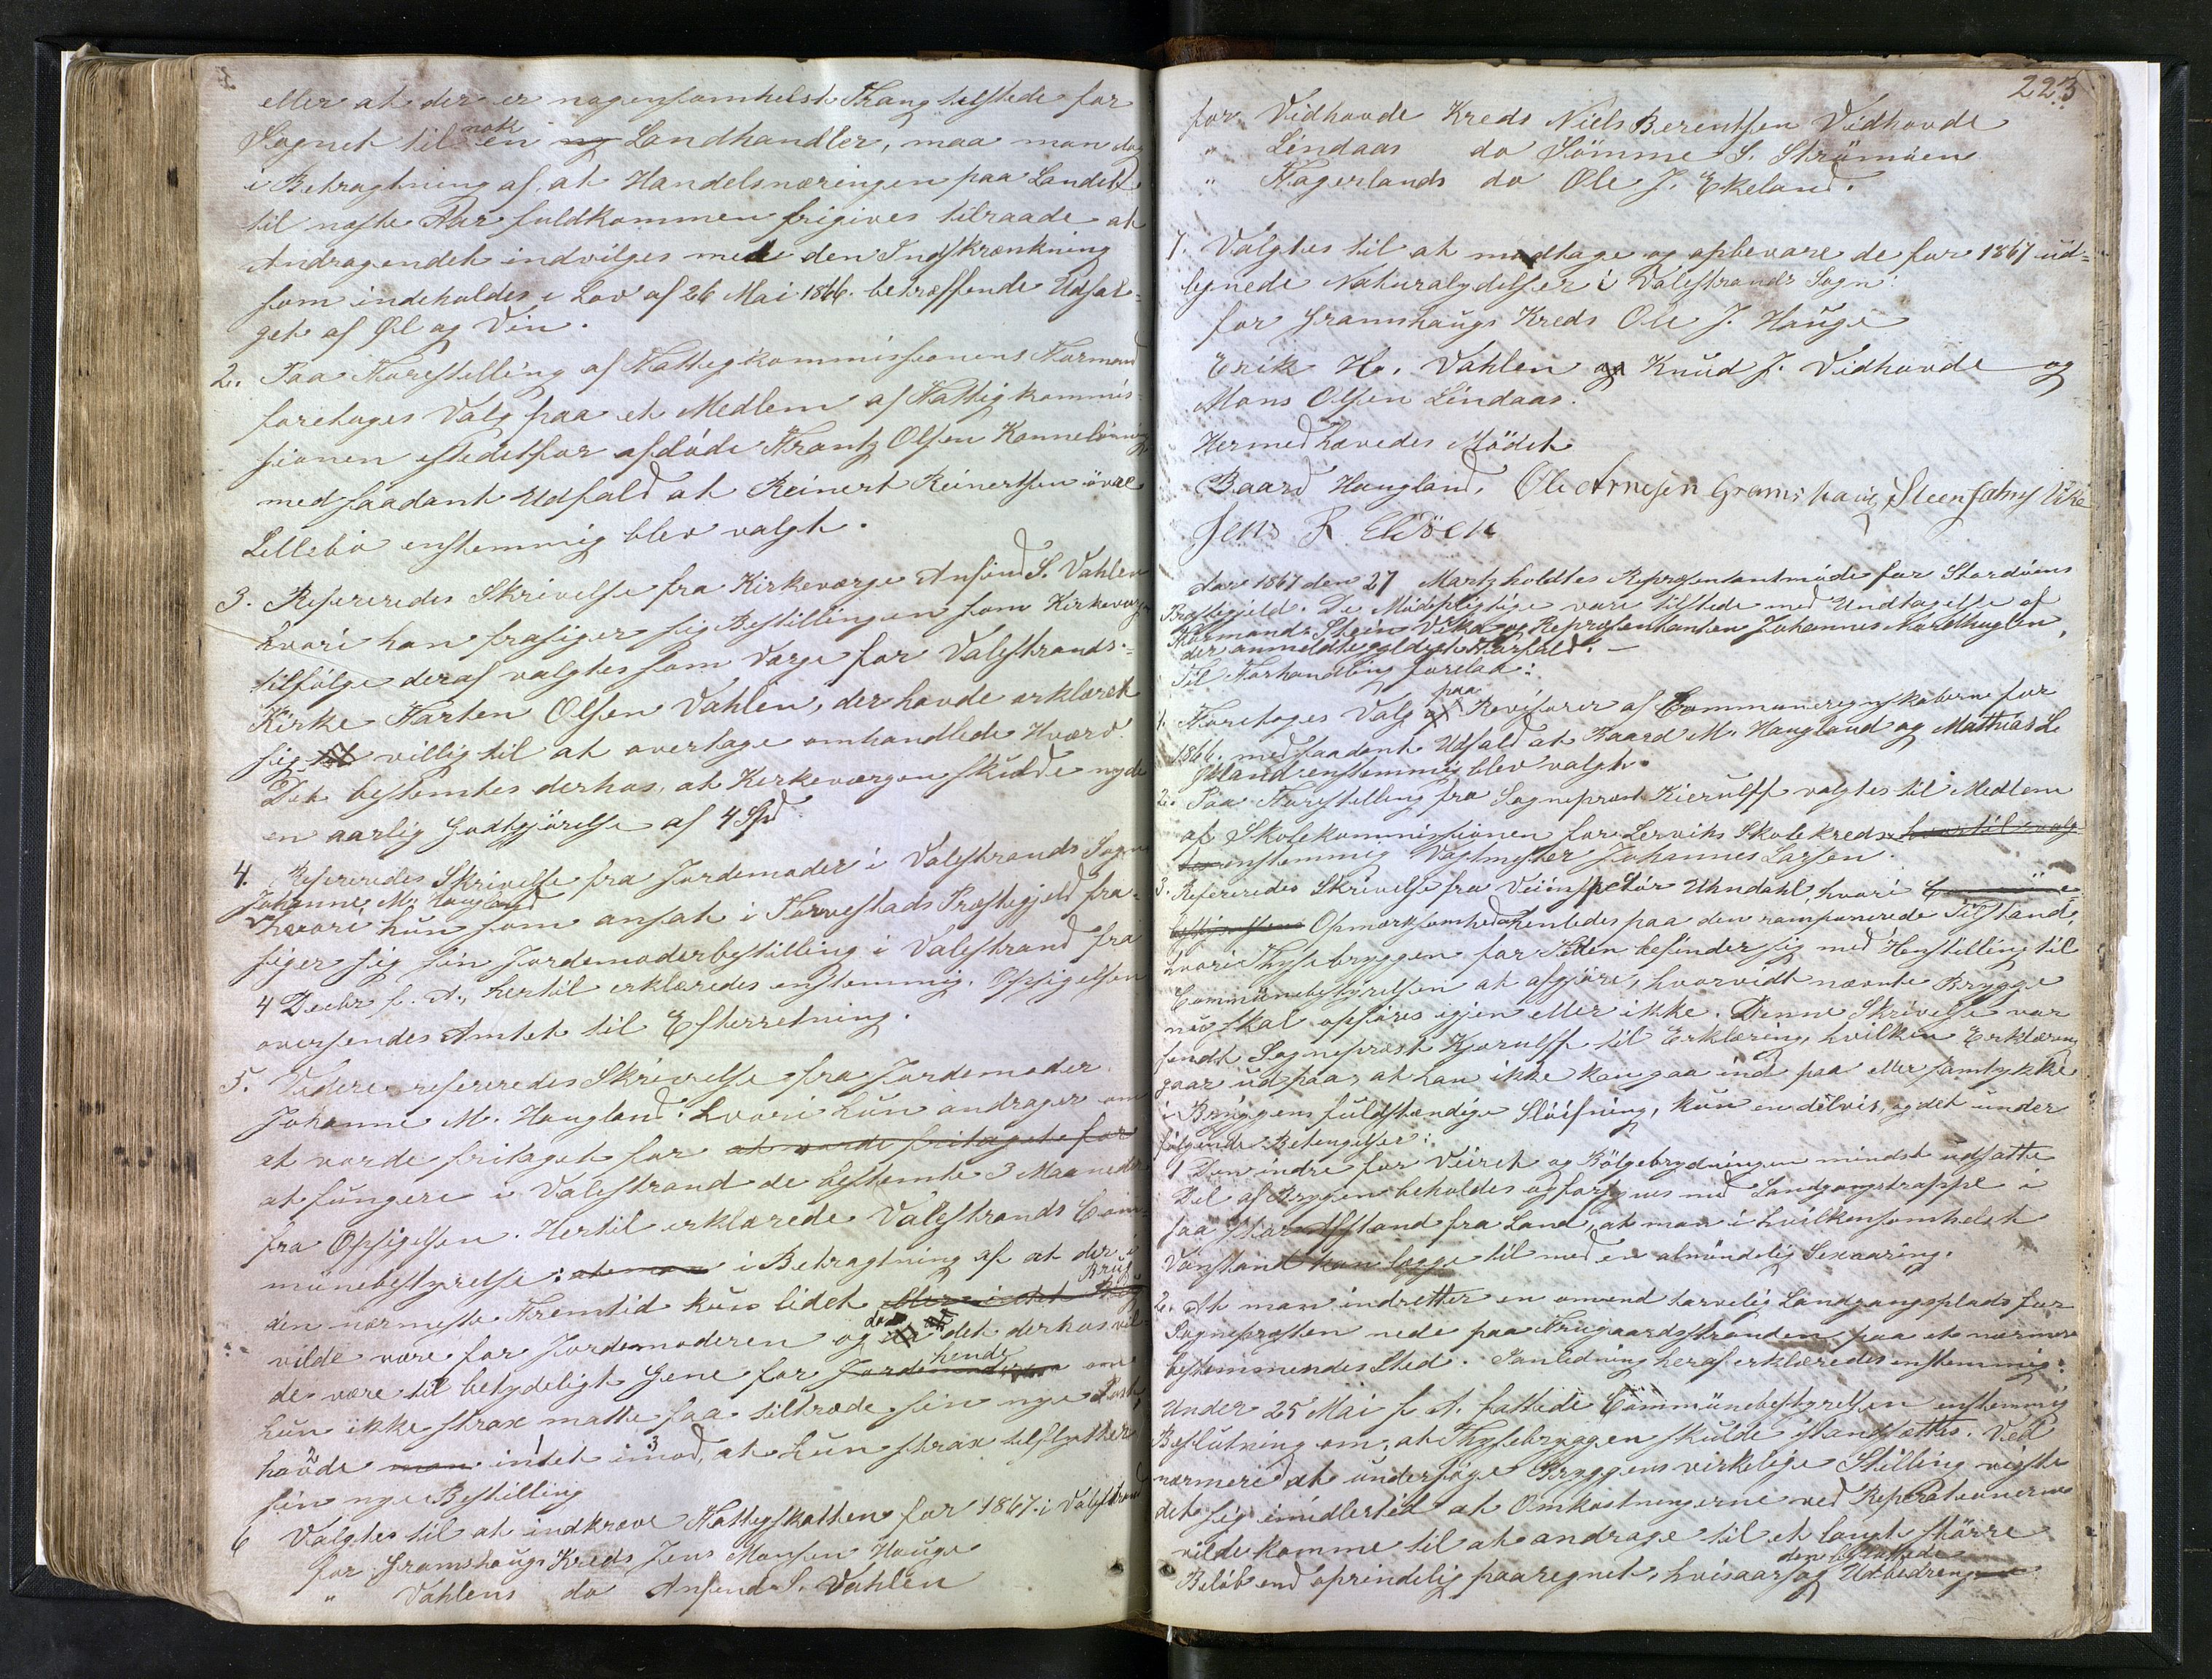 eller at der er nogensomhelst Trang tilstede for
Sognet til nok en Landhandler, maa man dog
i Betragtning af, at Handelsnæringen paa Landet
til næste Aar fuldkommen frigives tilraade at
Andragendet indvilges med den Indskrænkning
som indeholdes i Lov af 26 Mai 1866. betræffende Udsal-
get af Øl og Vin.
2. Paa Forestilling af Fattigkommissionens Formand
foretoges Valg paa et Medlem af Fattigkommis-
sionen istedetfor afdöde Frantz Olsen
med saadant Udfald at Reinert Reinertsen övre
Lillebö enstemmig blev valgt.
3. Refereredes Skrivelse fra Kirkeværge Ansend S. Vahlen
hvori han frasiger sig Bestillingen som Kirkeværge
tilfölge deraf valgtes som Værge for Valestrands-
Kirke Marten Olsen Vahlen, der havde erklæret
sig villig til at overtage omhandlede Hværv.
Det bestemtes derhos, at Kirkeværgen skulde nyde
en aarlig Godtgjörelse af 4 Spd
4. Refereredes Skrivelse fra Jordemoder i Valestrands Sogn
Johanne M. Haugland
hvori hun som ansat i Torvestads Præstegjeld fra-
siger sig sin Jordemoderbestilling i Valestrand fra
4 Decbr f. A., hertil erklæredes enstemmig. Opsigelsen
oversendes Amtet til Efterretning.
5. Videre refereredes Skrivelse fra Jordemoder
Johanne M. Haugland hvori hun andrager om
at vorde fritaget for at vorde fritaget for
at fungere i Valestrand de bestemte 3 Maaneder
fra Opsigelsen. Hertil erklærede Valestrands Com-
münebestyrelse: at man i Betragtning af at der i
den nærmeste Fremtid kun lidet Brug
vilde være for Jordemoderen og da det derhos vil-
de være til betydeligt Gene for hende om
hun ikke strax matte faa tiltræde sin nye Post,
havde man intet imod, at hun strax tilflytter
sin nye Bestilling
6 Valgtes til at indkræve Fattigskatten for 1867. i Valestrand
for Gramshaugs Kreds Jens Monsen Hauge
" Vahlens do Ansend S. Vahlen
223
for Vidhovde Kreds Niels Berentsen Vidhovde
" Lindaas do Sömme S. Strömöen
" Fagerlands do Ole J. Ekeland.
7. Valgtes til at modtage og opbevare de for 1867 ud-
lignede Naturalydelser i Valestrands Sogn
for Gramshaugs Kreds Ole J. Hauge
Erik H. Vahlen og Knud J. Vidhovde og
Mons Olsen Lindaas.
Hermed hævedes Mödet
Baard Haugland, Ole Arnesen Gramshaug, Steen Vika
Jens R. Eldöen
Aar 1867 den 27 Martz holdtes Repræsentantmöde for Stordöens
Præstegjeld. De Mödepligtige vare tilstede med Undtagelse af
Formand Stein Vika og Repræsentanten Johannes Nordhuglen,
der anmeldte gyldigt Forfald.
Til Forhandling forelaa:
1. Foretoges Valg paa Revisorer af Communeregnskaberne for
1866. med saadant Udfald at Baard M. Haugland og Mathias L.
enstemmig blev valgt.
2. Paa Forestilling fra Sogneprest Kierulff valgtes til Medlem
af Skolekommissionen for Lerviks Skolekreds hvortil valg-
tes enstemmig Vagtmester Johannes Larsen.
3. Refereredes Skrivelse fra Veiinspektör Uhndahl, hvori
Opmærksomheden henledes paa den ramponerede Tilstand,
hvori Thysebryggen for Tiden befinder sig med Henstilling til
Commünebestyrelsen at afgjöre, hvorvidt nævnte Brygge
nu skal opföres igjen eller ikke. Denne Skrivelse var
sendt Sogneprest Kjerulff til Erklæring, hvilken Erklæring
gaar ud paa, at han ikke kan gaa ind paa eller samtykke
i Bryggens fuldstændige Slöifning, kun en delvis, og det under
fölgende Betingelser:
1 Den indre for Veiret og Bölgebrydningen mindst udsatte
Del af Bryggen beholdes og forsynes med Landgangstrappe i
saa stor Afstand fra Land, at man i hvilkensomhelst
Vanstand kan lægge til med en almindelig Sexæring.
2. At man indretter en omend tarvelig Landgangsplads for
Sognepresten nede paa Prægaardsstranden paa et nærmere
bestemmendes Sted. I anledning heraf erklæredes enstemmig:
Under 25 Mai f A. fattede Commünebestyrelsen enstemmig
Beslutning om, at Thysebryggen skulde istandsættes. Ved
nærmere at undersöge Bryggens virkelige Stilling viste
det sig imidlertid at Omkostningerne ved Reperationerne
vilde komme til at andrage til et langt större
Belöb end oprindelig paaregnet, hvisaarsag den besluttede Udbedring